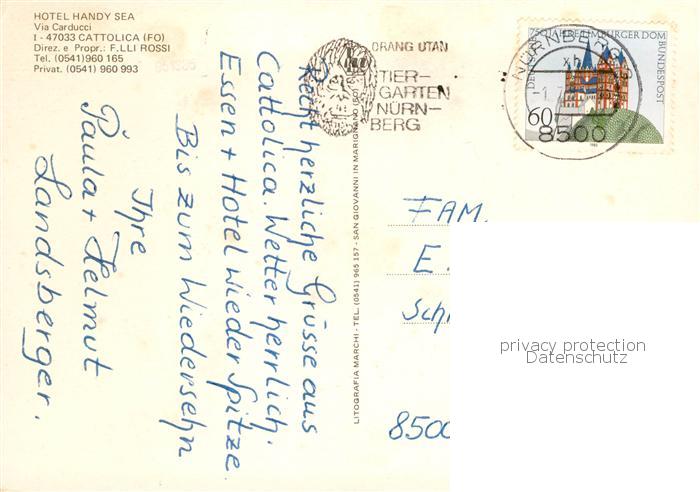 HOTEL HANDY SEA
Via Carducci
I - 47033 CATTOLICA (FO)
Direz. e Propr.: F.LLI ROSSI
Tel. (0541) 960 165
Privat. (0541) 960 993
Recht herzliche Grüsse aus
Cattolica. Wetter herrlich.
Essen + Hotel wieder Spitze.
Bis zum Wiedersehn
Ihre
Paula + Helmut
Landsberger.
LITOGRAFIA MARCHI - TEL. (0541) 965 157 - SAN GIOVANNI IN MARIGNANO (FO)
ORANG UTAN
TIER-
GARTEN
NÜRN-
BERG
NÜRNBERG
8500
750 JAHRE LIMBURGER DOM
DEUTSCHE BUNDESPOST
60
FAM.
E.
Sch
8500
privacy protection
Datenschutz